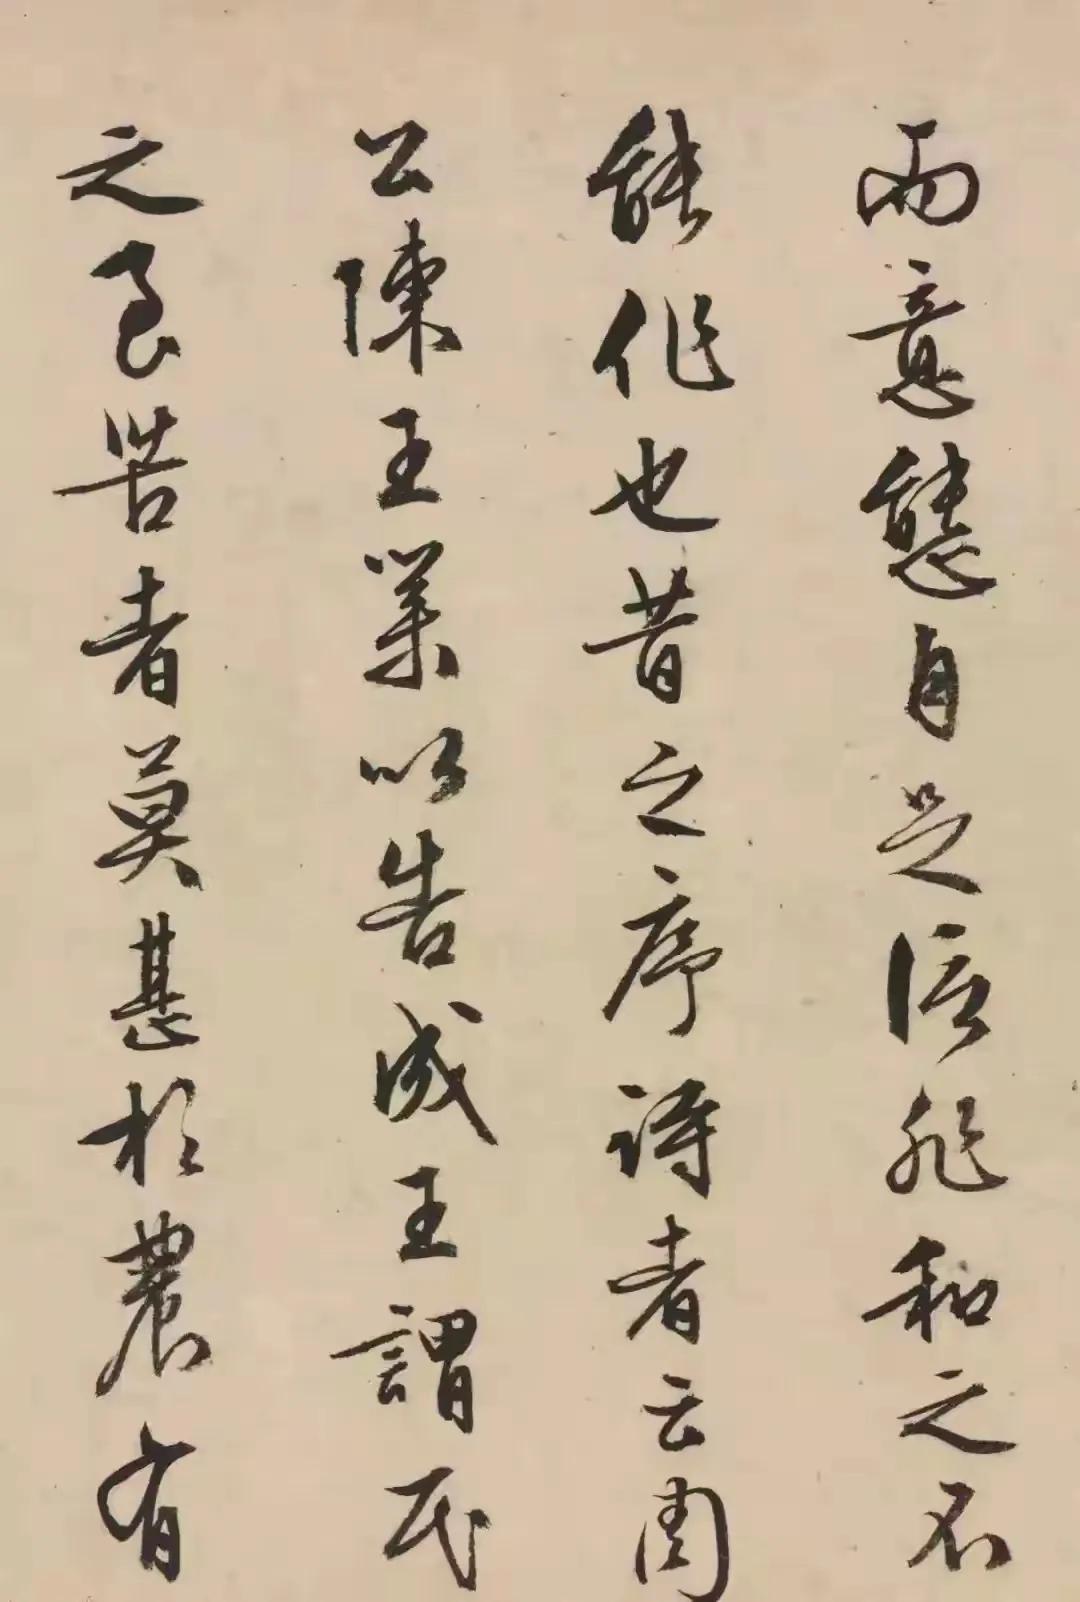 而意態自足信非和之不
能作也昔之序詩者云周
公陳王業以告成王謂民
之良苦者莫甚於農有